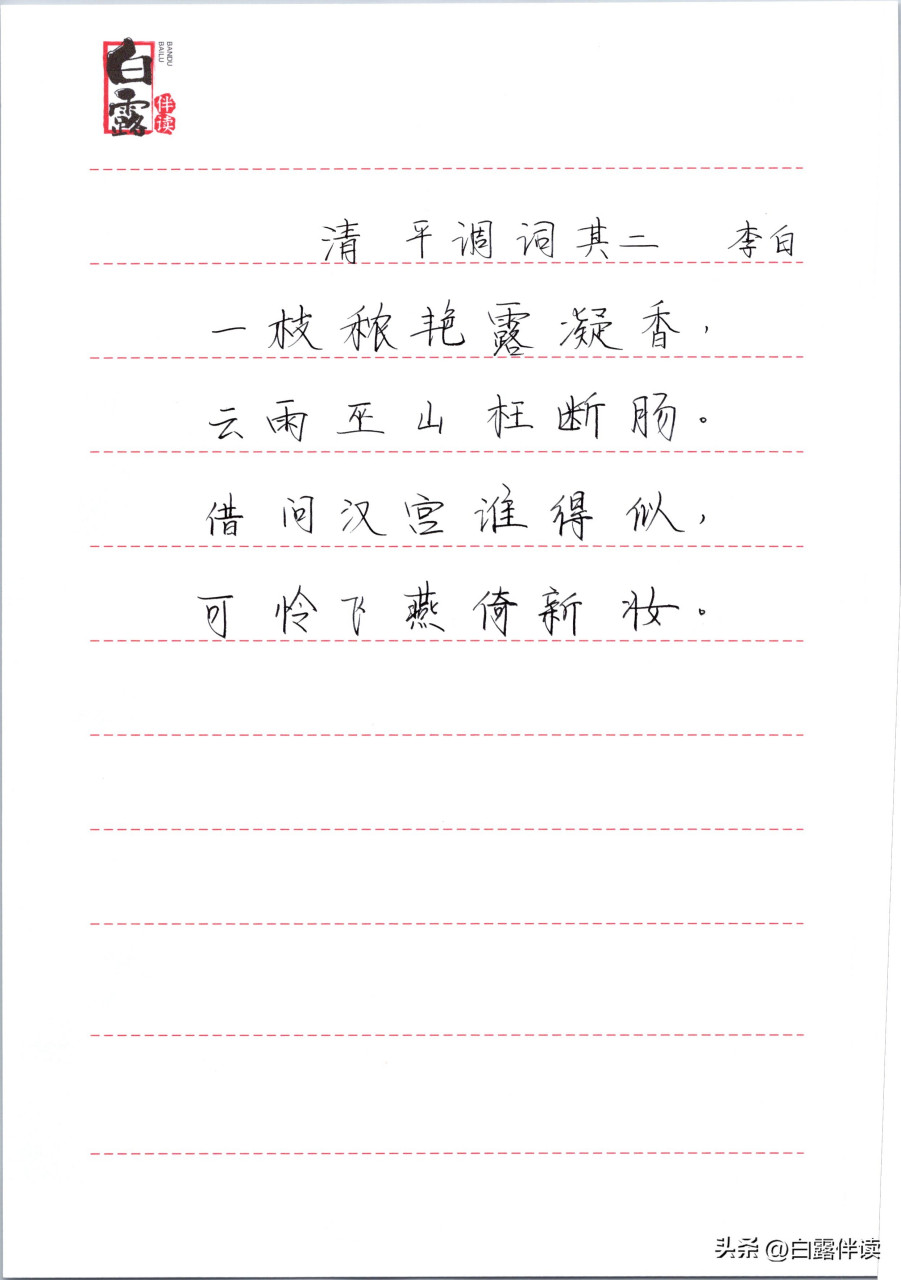 白露
伴读
BANDU
BAILU
清平调词其二 李白
一枝秾艳露凝香，
云雨巫山枉断肠。
借问汉宫谁得似，
可怜飞燕倚新妆。
头条 @白露伴读